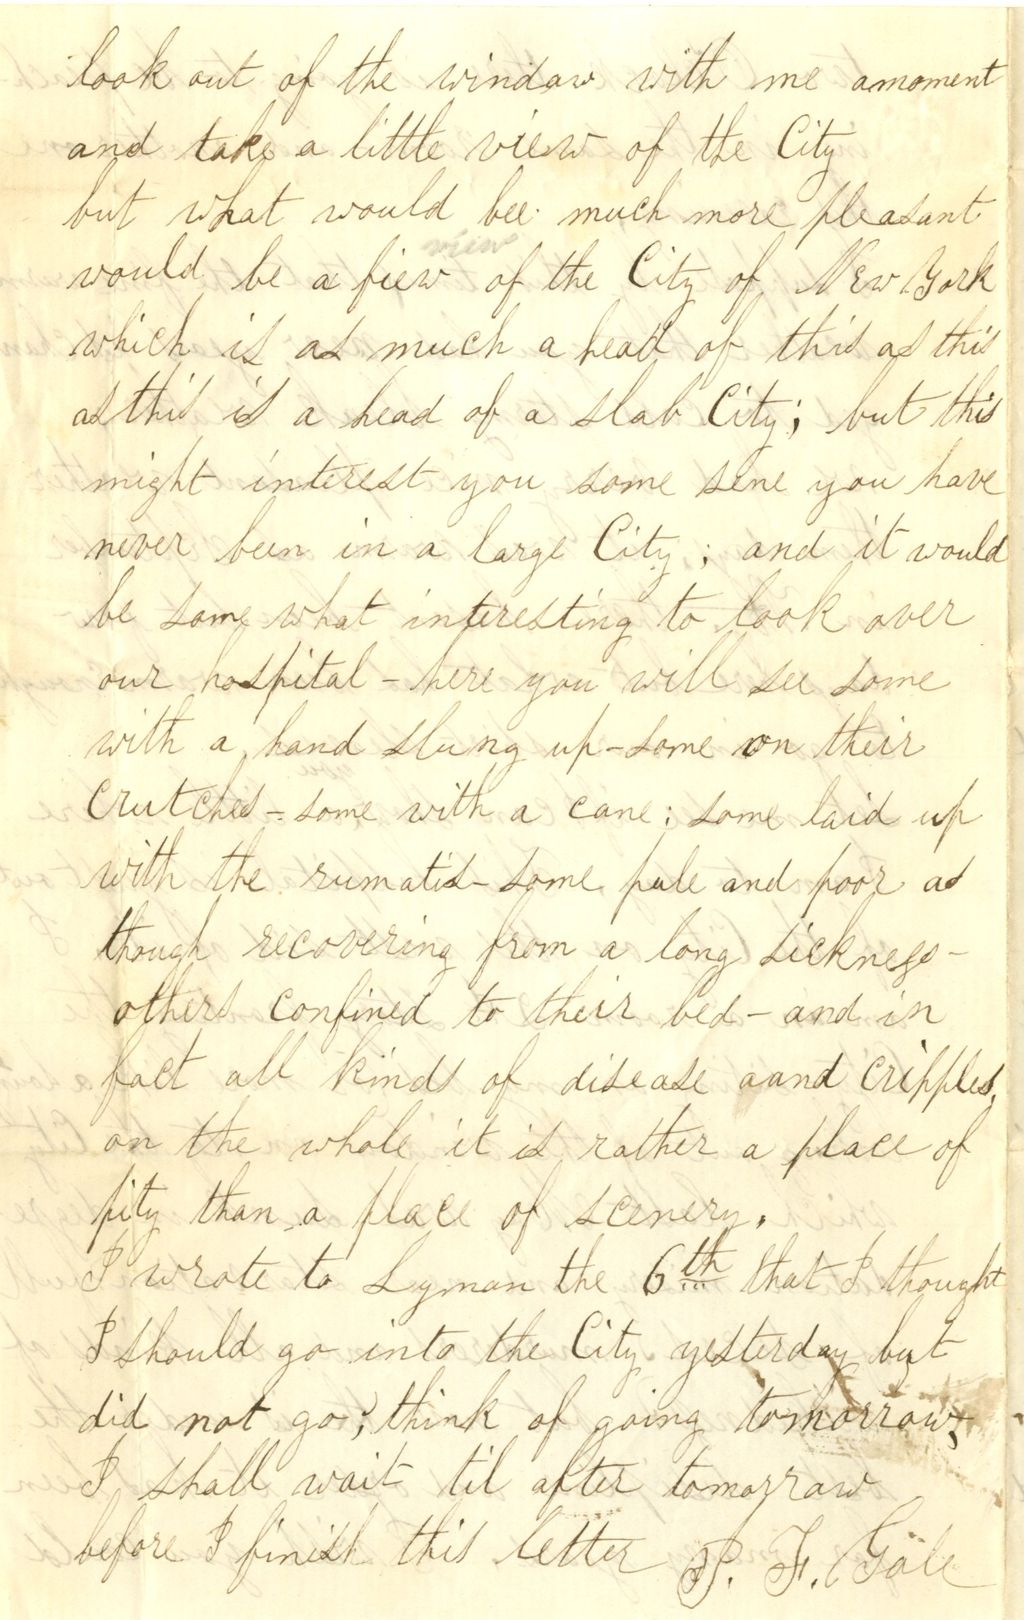 look out of the window with me amoment
and take a little view of the City
but what would bee much more pleasant
view
would be a fiew of the City of New York
which is as much a head of this as this
as this is a head of a slab City; but this
might interest you some sene you have
never been in a large City; and it would
be some what interesting to look over
our hospital - here you will see some
with a hand slung up - some on their
Crutches - some with a cane; some laid up
with the rumatis - some pale and poor as
though recovering from a long sickness -
others confined to their bed - and in
fact all kinds of disease aand cripples,
on the whole it is rather a place of
pity than a place of scenery.
I wrote to Lyman the 6th that I thought
I should go into the City yesterday but
did not go; think of going tomorrow,
I shall wait til after tomorraw
before I finish this letter P. F. Gale